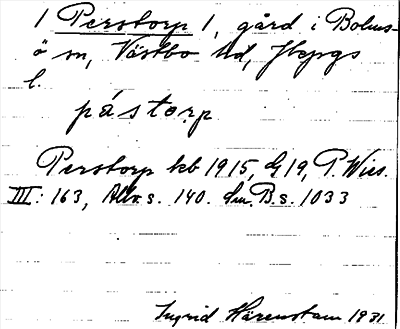 1 Perstorp 1, gård i Bolms-
ö sn, Västbo hd, Jbgs
l.
pástorp
Perstorp kb 1915, G 19, P. Wies.
III: 163, Allv. s. 140. B. s. 1033
Ingrid Härenstam 1931